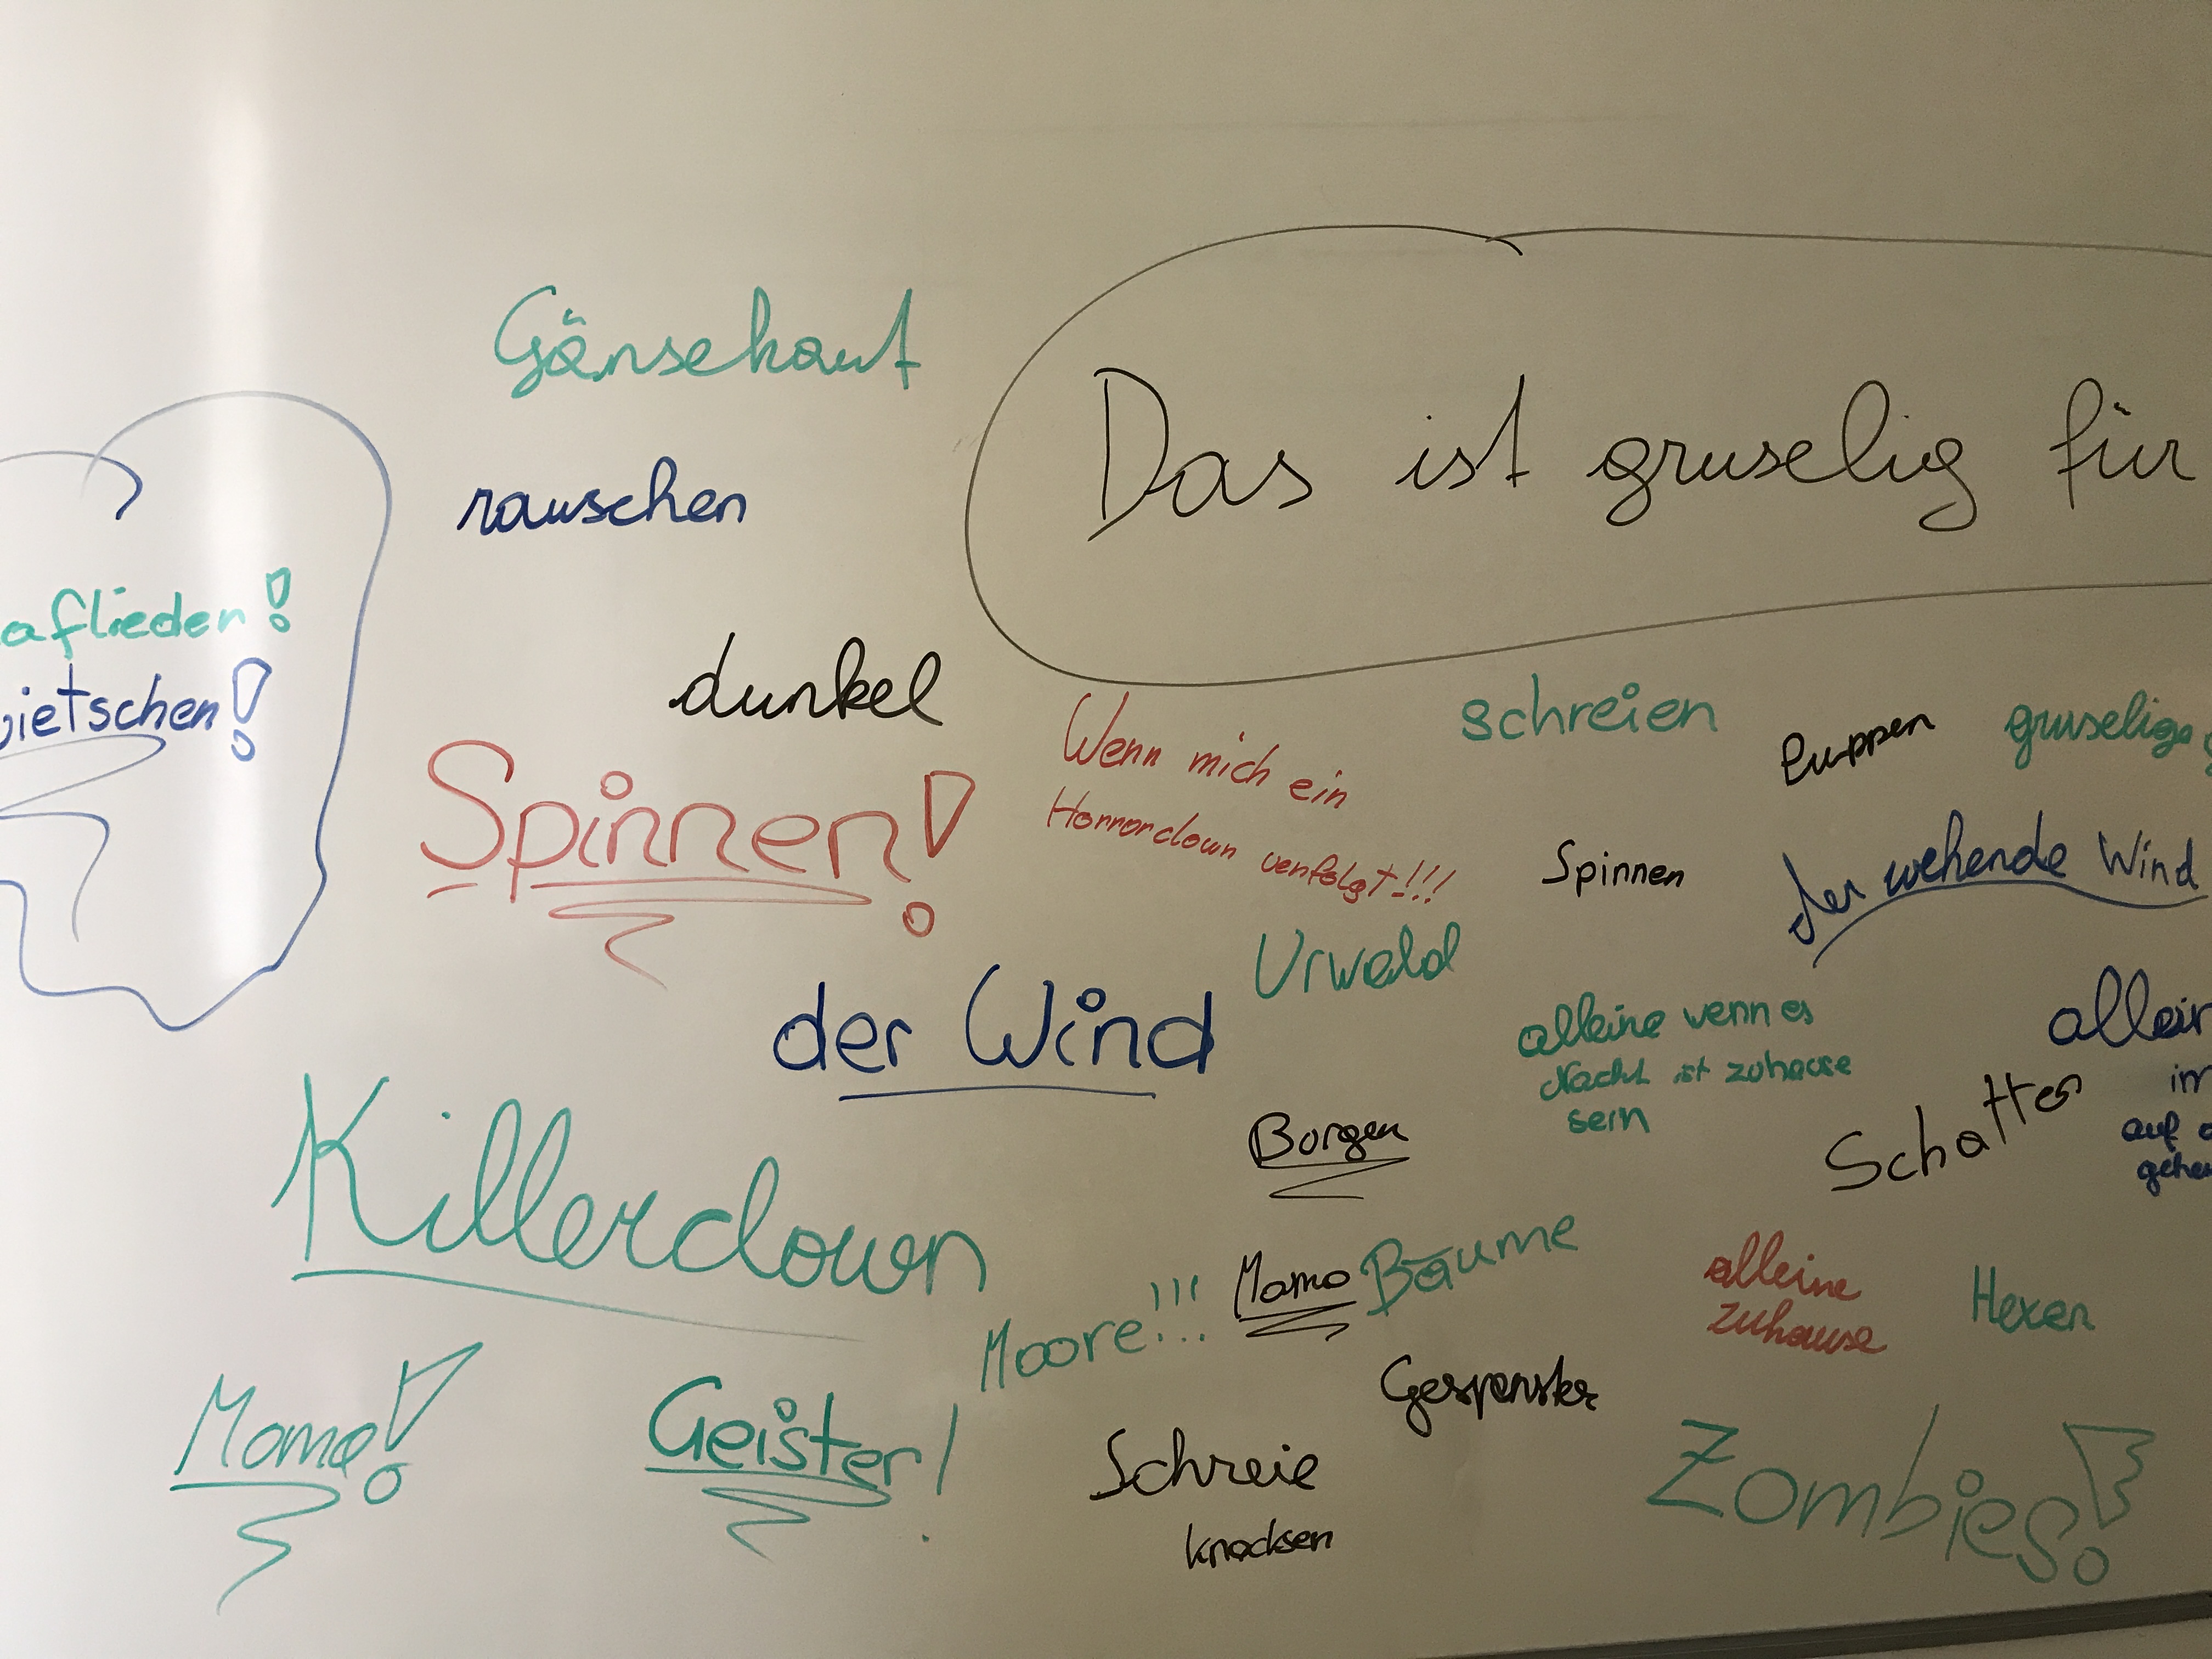 Gänsehaut
Das ist gruselig für
rauschen
aflieder!
ietschen!
dunkel
Spinnen!
Wenn mich ein
Horrorclown verfolgt!!!
schreien
Puppen
gruselige
Spinnen
der wehende Wind
Urwald
der Wind
alleine wenn es
Nacht ist zuhause
sein
allein
im
auf
gehe
Schatten
Burgen
Killerclown
Momo
Bäume
alleine
zuhause
Hexen
Moore!!!
Momo!
Geister!
Gespenster
Schreie
knacksen
Zombies!